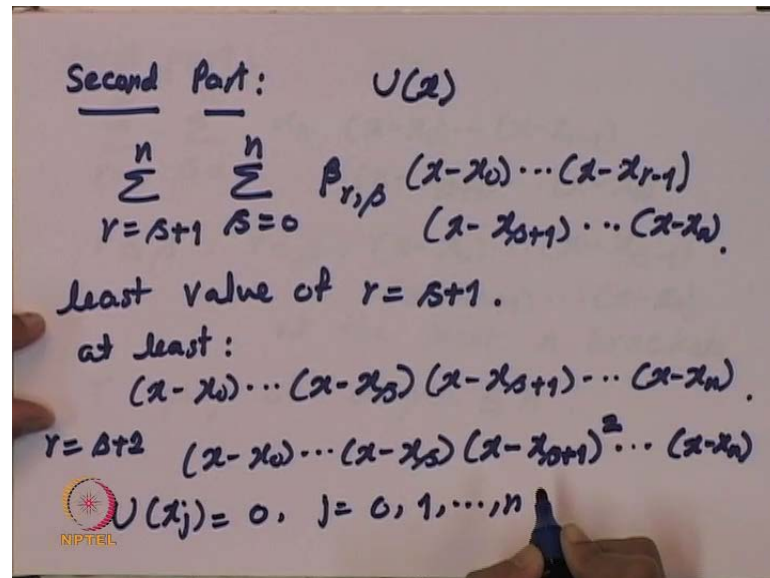 Second Part: U(x)
n n
Σ Σ β_{r,s} (x-x_0)...(x-x_{r-1})
r=s+1 s=0 (x-x_{s+1})...(x-x_n).
least value of r = s+1.
at least:
(x-x_0)...(x-x_s)(x-x_{s+1})...(x-x_n).
r=s+2 (x-x_0)...(x-x_s)(x-x_{s+1})^2...(x-x_n)
U(x_j)=0, j=0,1,...,n
NPTEL